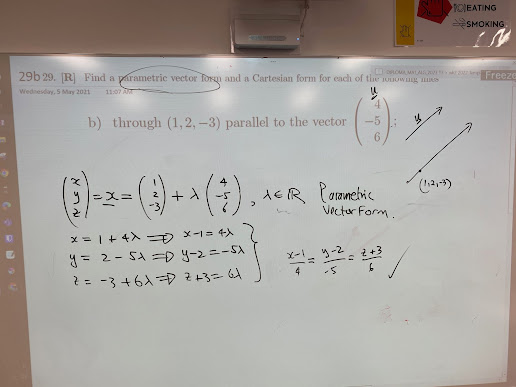 EATING
SMOKING
29b 29. [R] Find a parametric vector form and a Cartesian form for each of the following lines
Freeze
Wednesday, 5 May 2021 11:07 AM
b) through (1, 2, −3) parallel to the vector (4 −5 6);
v
v
(1,2,-3)
(x y z) = x = (1 2 -3) + λ (4 -5 6), λ∈ℝ Parametric
Vector Form.
x = 1 + 4λ ⇒ x-1 = 4λ
y = 2 - 5λ ⇒ y-2 = -5λ
z = -3 + 6λ ⇒ z+3 = 6λ
x-1/4 = y-2/-5 = z+3/6 ✓